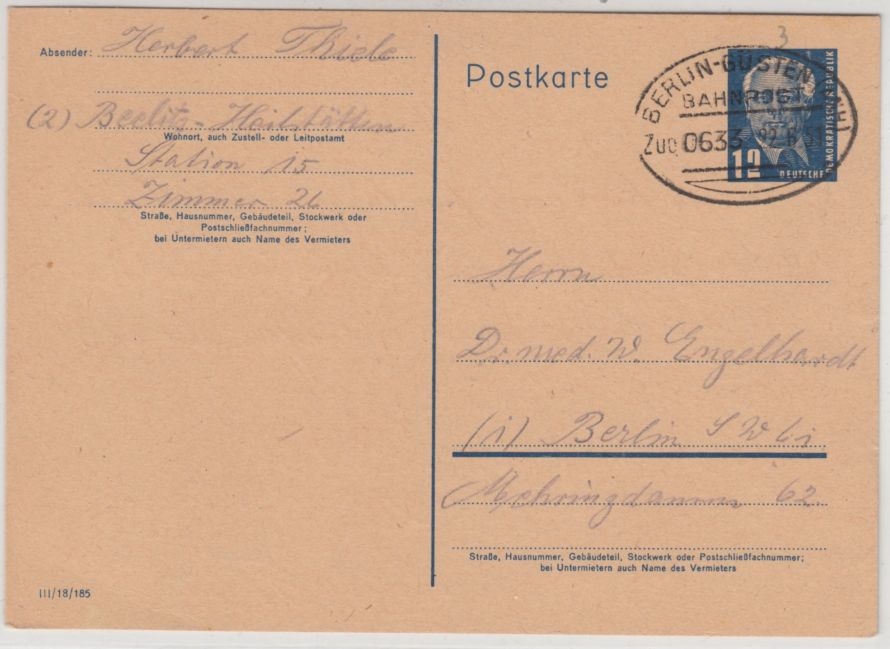 3
Absender: Herbert Thiele
(2) Beelitz-Heilstätten
Wohnort, auch Zustell- oder Leitpostamt
Station 15
Zimmer 26
Straße, Hausnummer, Gebäudeteil, Stockwerk oder
Postschließfachnummer;
bei Untermietern auch Name des Vermieters
Postkarte
BERLIN-GÜSTEN
BAHNPOST
Zug 0633
12
DEUTSCHE
DEMOKRATISCHE REPUBLIK
Herrn
Dr. med. W. Engelhardt
(1) Berlin SW 61
Mehringdamm 62.
Straße, Hausnummer, Gebäudeteil, Stockwerk oder Postschließfachnummer;
bei Untermietern auch Name des Vermieters
III/18/185